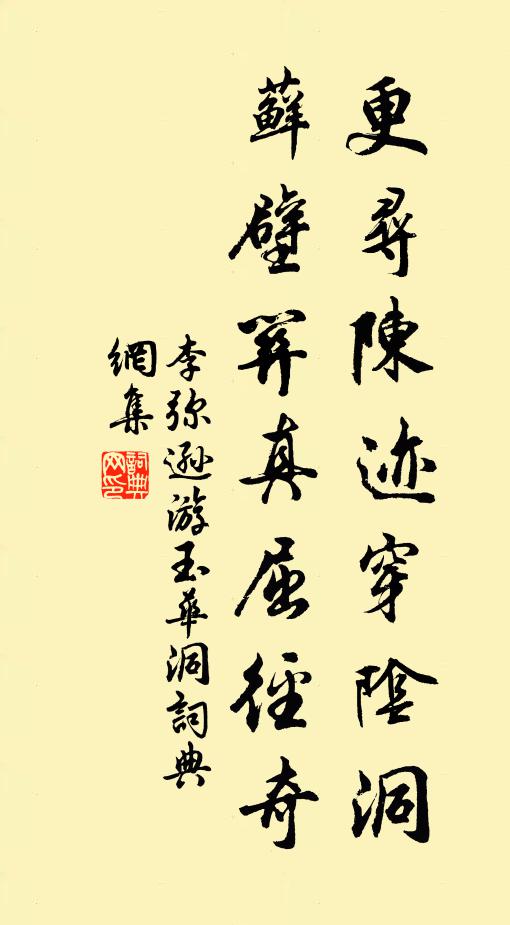 更尋陳迹穿陰洞
蘚壁開真屈徑奇
李弥遜游玉華洞詞典
網集
詞典
网印